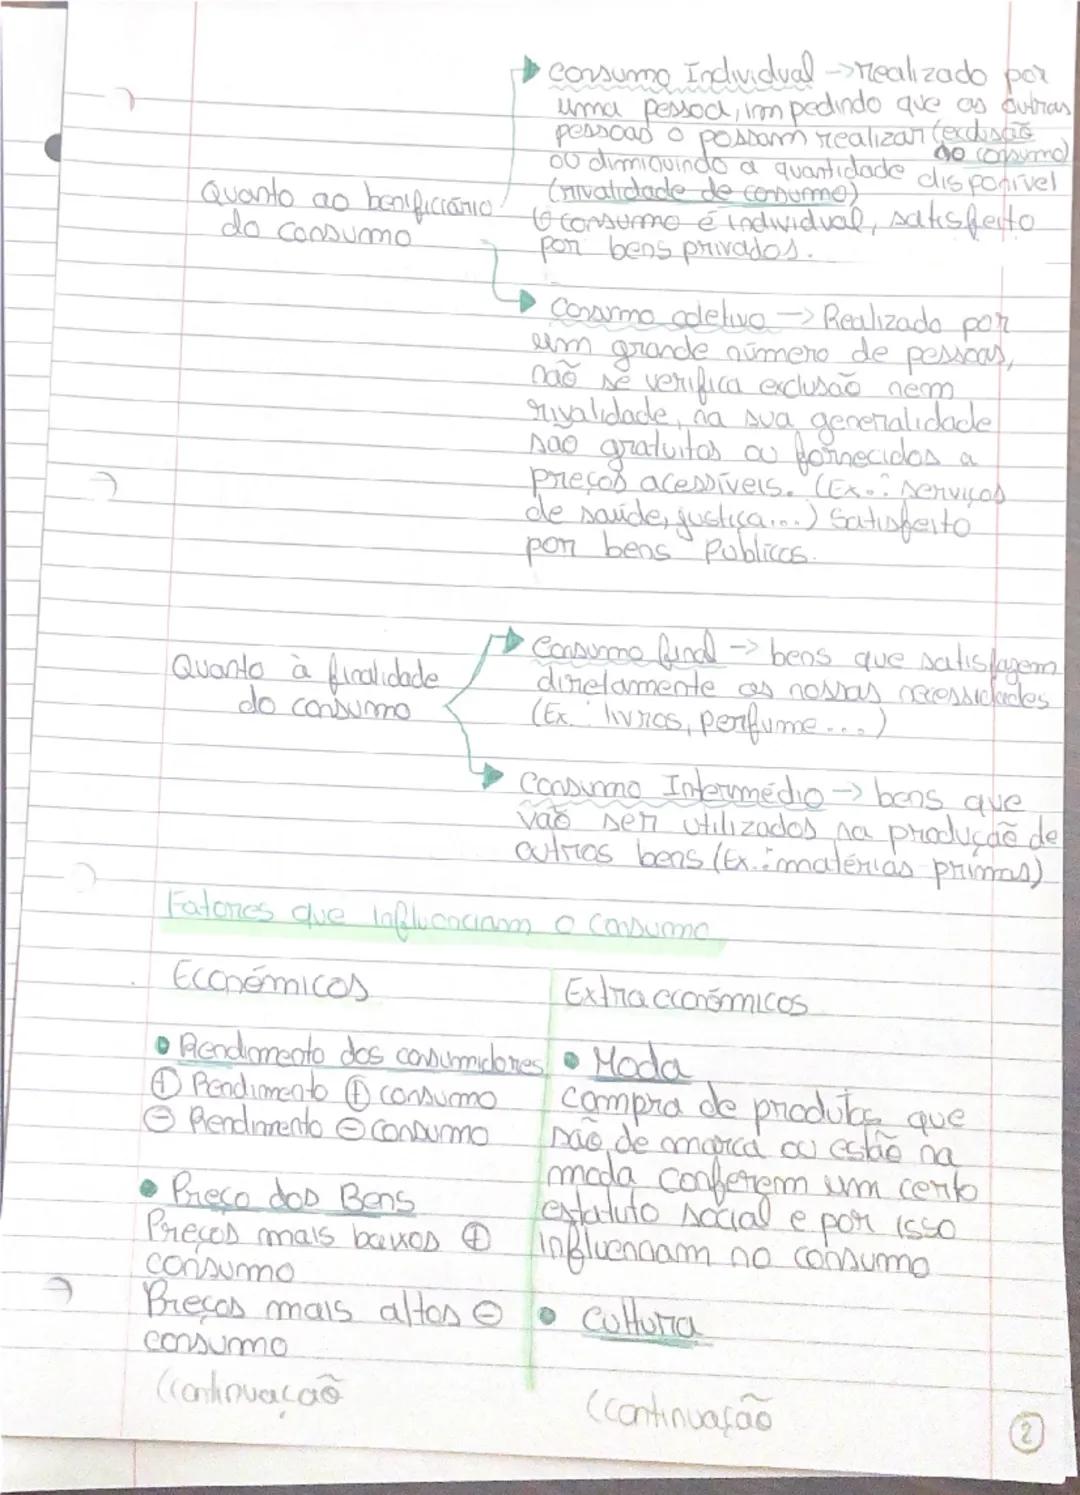 Consumo Individual -> realizado por
uma pessoa, impedindo que as outras
pessoas o possam realizar (exclusão
do consumo)
ou dimiquindo a quantidade disponível
(rivalidade de consumo)
Quanto ao benificiário
do consumo
(O consumo é individual, satisfeito
por bens privados.
Consumo coletivo -> Realizado por
um grande número de pessoas,
não se verifica exclusão nem
rivalidade, na sua generalidade
são gratuitos ou fornecidos a
preços acessíveis. (Ex.: serviços
de saúde, justiça...) Satisfeito
por bens Publicos.
Quanto à finalidade
do consumo
Consumo final -> bens que satisfazem
diretamente as nossas necessidades
(Ex.: livros, perfume...)
Consumo Intermédio -> bens que
vão ser utilizados na produção de
outros bens (Ex.: matérias primas)
Fatores que influenciam o consumo
Económicos
Extraeconómicos
• Rendimento dos consumidores
⊕ Rendimento ⊕ consumo
⊖ Rendimento ⊖ consumo
• Preço dos Bens
Preços mais baixos ⊕
consumo
Preços mais altos ⊖
consumo
(continuação
• Moda
Compra de produtos que
são de marca ou estão na
moda conferem um certo
estatuto social e por isso
influenciam no consumo
• Cultura
(continuação
2